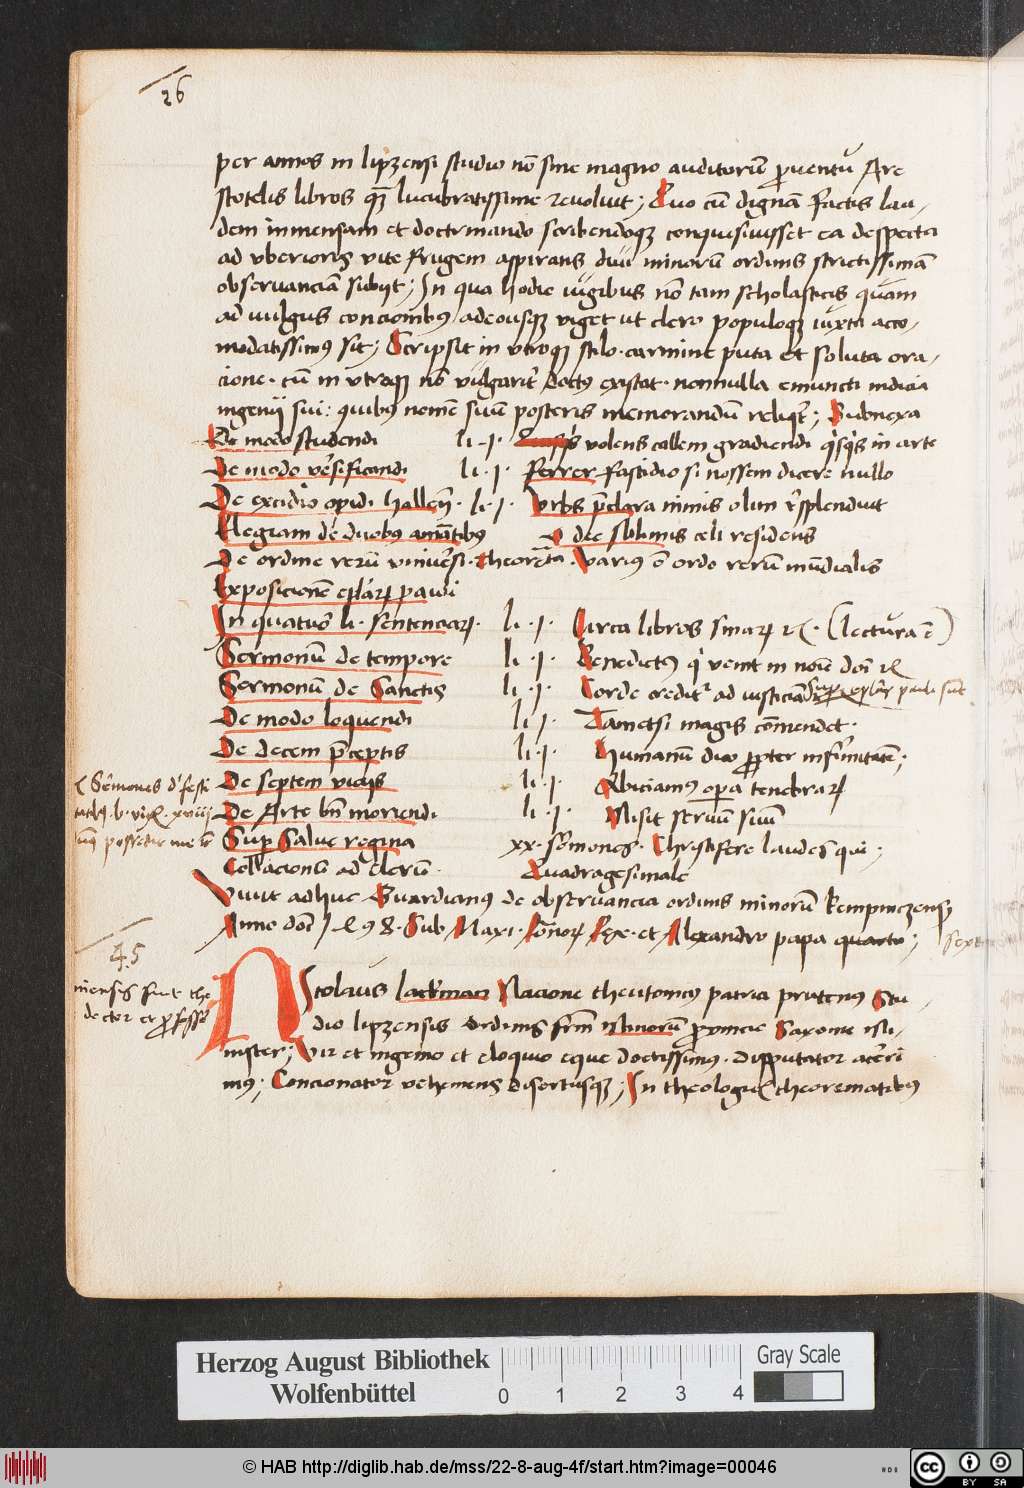 26
per annos in lipzensi studio nō sine magno auditorū ꝓuentu Are
stotelis libros qꝫ lucubratissime reuoluit; Quo cū dignā factis lau-
dem inmensam et doctrinando scribendoqꝫ conquisiuisset ea despecta
ad vberioris vite frugem aspirans diui minorū ordinis strictissimā
obseruanciā subijt; In qua hodie iugibus nō tam scholasticis quam
ad uulgus concionibꝰ adeousqꝫ viget ut clero populoqꝫ iuxta acco-
modatissimꝰ sit; Scripsit in vtroqꝫ stilo. carmine puta et soluta ora-
cione. cū in vtroqꝫ nō vulgarit̄ doctꝰ existat. nonnulla emuncti indicia
ingenij sui: quibꝰ nomē suū posteris memorandū reliqͥt; Subnexa
De modo studendi li. j. volens callem gradiendi qͥsqͥs in arte
De modo v̄sificandi li. j. Ferrer fastidio si nossem dicere nullo
De excidio opidi hallen̄. li. j. Vrbs p̄clara nimis olim r̄splenduit
Elegiam de duobus amātibus O dee sblimis celi residens
De ordine rerū vniuersi. theorēta. Varius ē ordo rerum mūdialis
Exposicionē epl̄arꝝ pauli
In quatuor li. sentenciarꝝ. li. j. Circa libros sniarꝝ ꝛc. (lectura ē)
Sermonū de tempore li. j. Benedictus qͥ venit in noīe dn̄i ꝛc
Sermonū de Sanctis li. j. Corde creditͬ ad iusticiā Suꝑ epl̄as pauli sunt
De modo loquendi li. j. Tametsi magis cōmendet.
De decem p̄ceptis li. j. Humanū dico ꝓpter infirmitatē;
De septem vicijs li. j. Abiciamus oꝑa tenebrarꝝ
De Arte bn̄ moriendi li. j. Misit seruū suū
Suꝑ Salue regina xx. sermones. Christifere laudes qui;
Collacionū ad clerū. Quadragesimale
Sermones d' festi
Viuit adhuc Guardianꝰ de obseruancia ordinis minorū kempniczensꝭ
Anno dn̄i 1498. Sub Maxi. Romorꝝ Rege. et Alexandro papa quarto; sexto
45
Nicolaus lackman Nacione theutonicꝰ patria prutenꝰ Stu-
dio lipzensis Ordinis frm̄ Minorū ꝓuincie Saxonie Mi-
nister; Vir et ingenio et eloquio eque doctissimꝰ. Disputator acerri
mꝰ; Concionator vehemens disertusqꝫ; In theologicꝭ theorematibus
mensis fuit the
doctor et ꝓfessor
Herzog August Bibliothek
Wolfenbüttel
0 1 2 3 4
Gray Scale
© HAB http://diglib.hab.de/mss/22-8-aug-4f/start.htm?image=00046
cc BY SA